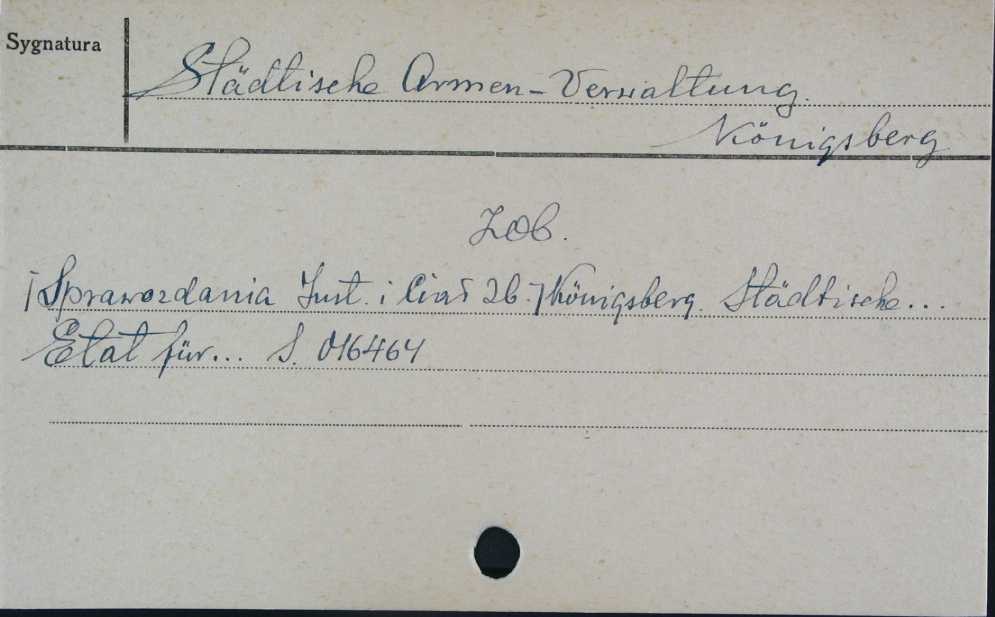 Sygnatura
Städtische Armen-Verwaltung.
Königsberg
Zob.
[Sprawozdania Inst. i Ciał zb.] Königsberg. Städtische...
Etat für... S. 016464